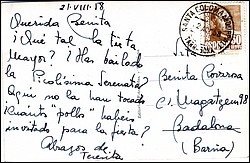 21-VIII-58
Querida Benita
¿Qué tal la fiesta
Mayor? ¿Has bailado
la Picolísima Serenata?
Aquí no la han tocado
¿Cuantos "pollos" habeis
invitado para la fiesta?
Abrazos de
SANTA COLOMA
Benita
C. Magatzem 98
Badalona
(Barna)